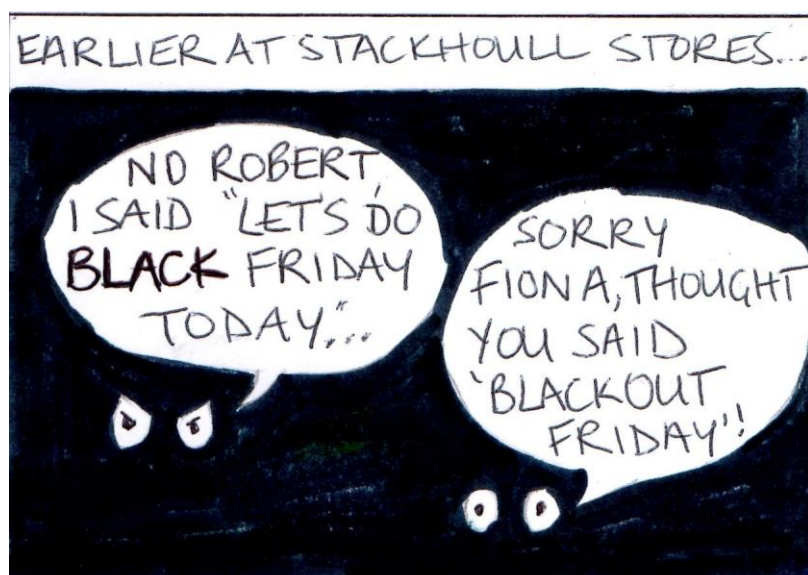 EARLIER AT STACKHOULL STORES...
NO ROBERT,
I SAID "LET'S DO
BLACK FRIDAY
TODAY"...
SORRY
FIONA, THOUGHT
YOU SAID
'BLACKOUT
FRIDAY'!